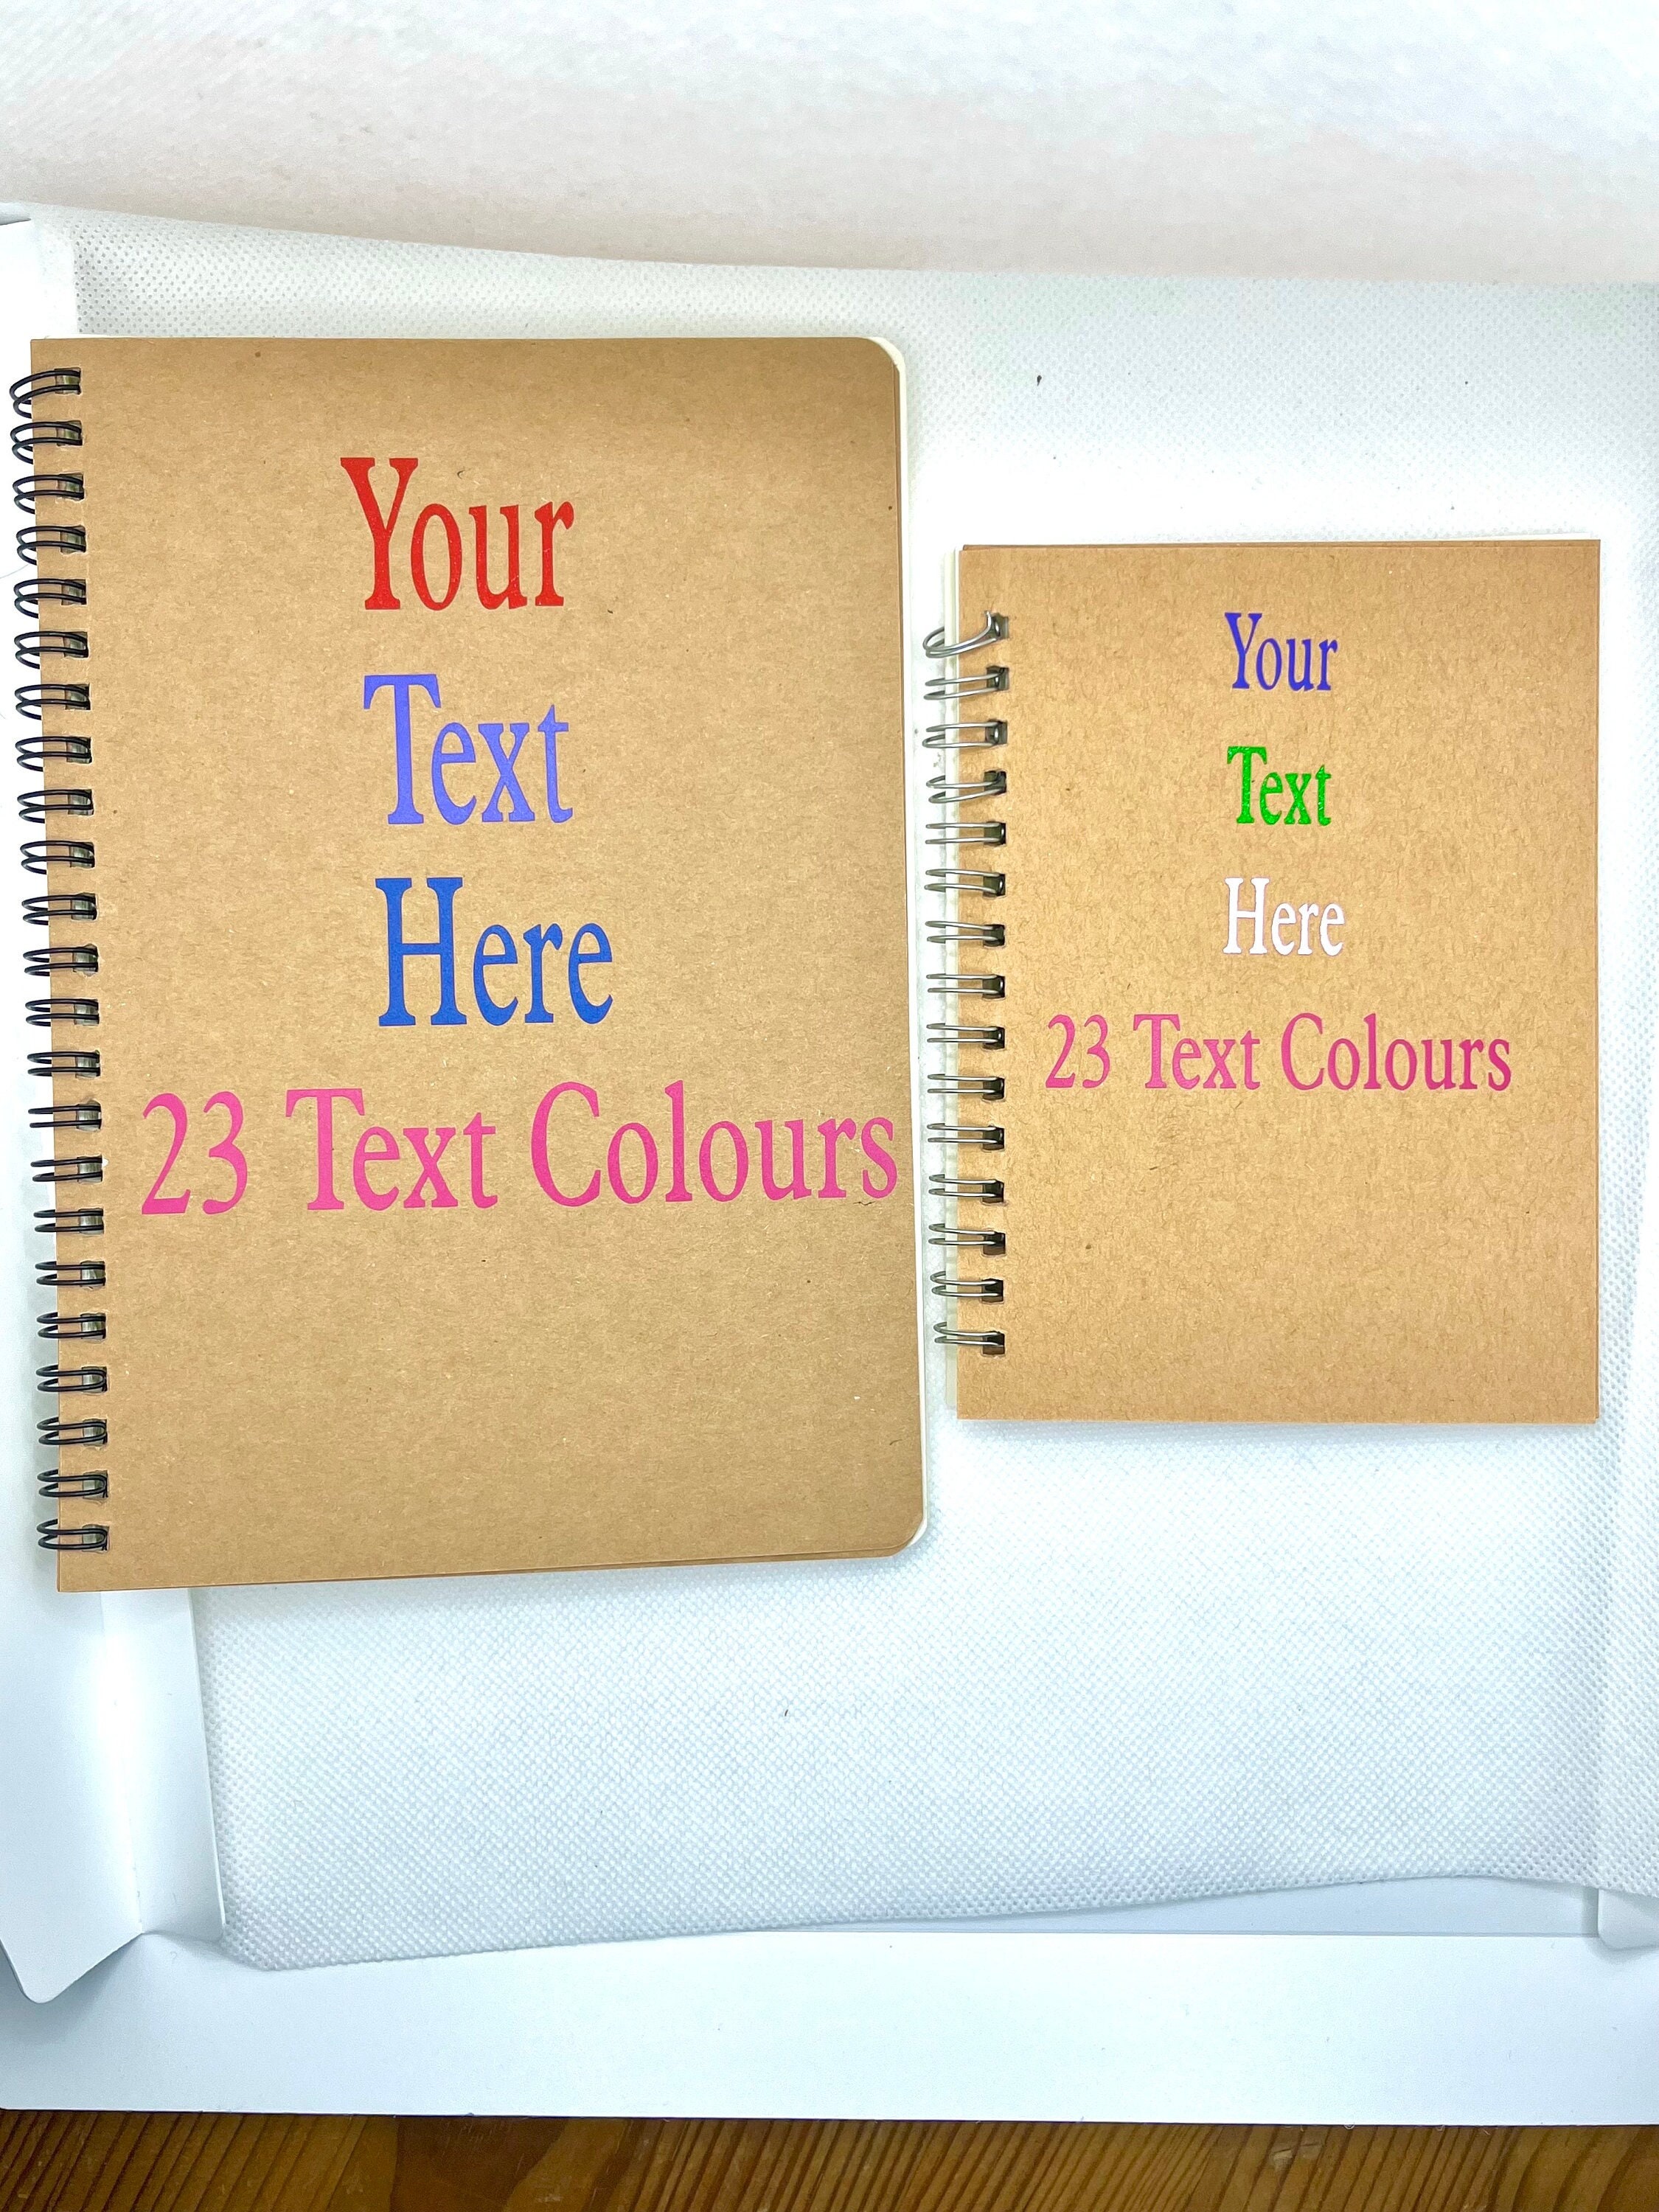 Your
Text
Here
23 Text Colours
Your
Text
Here
23 Text Colours